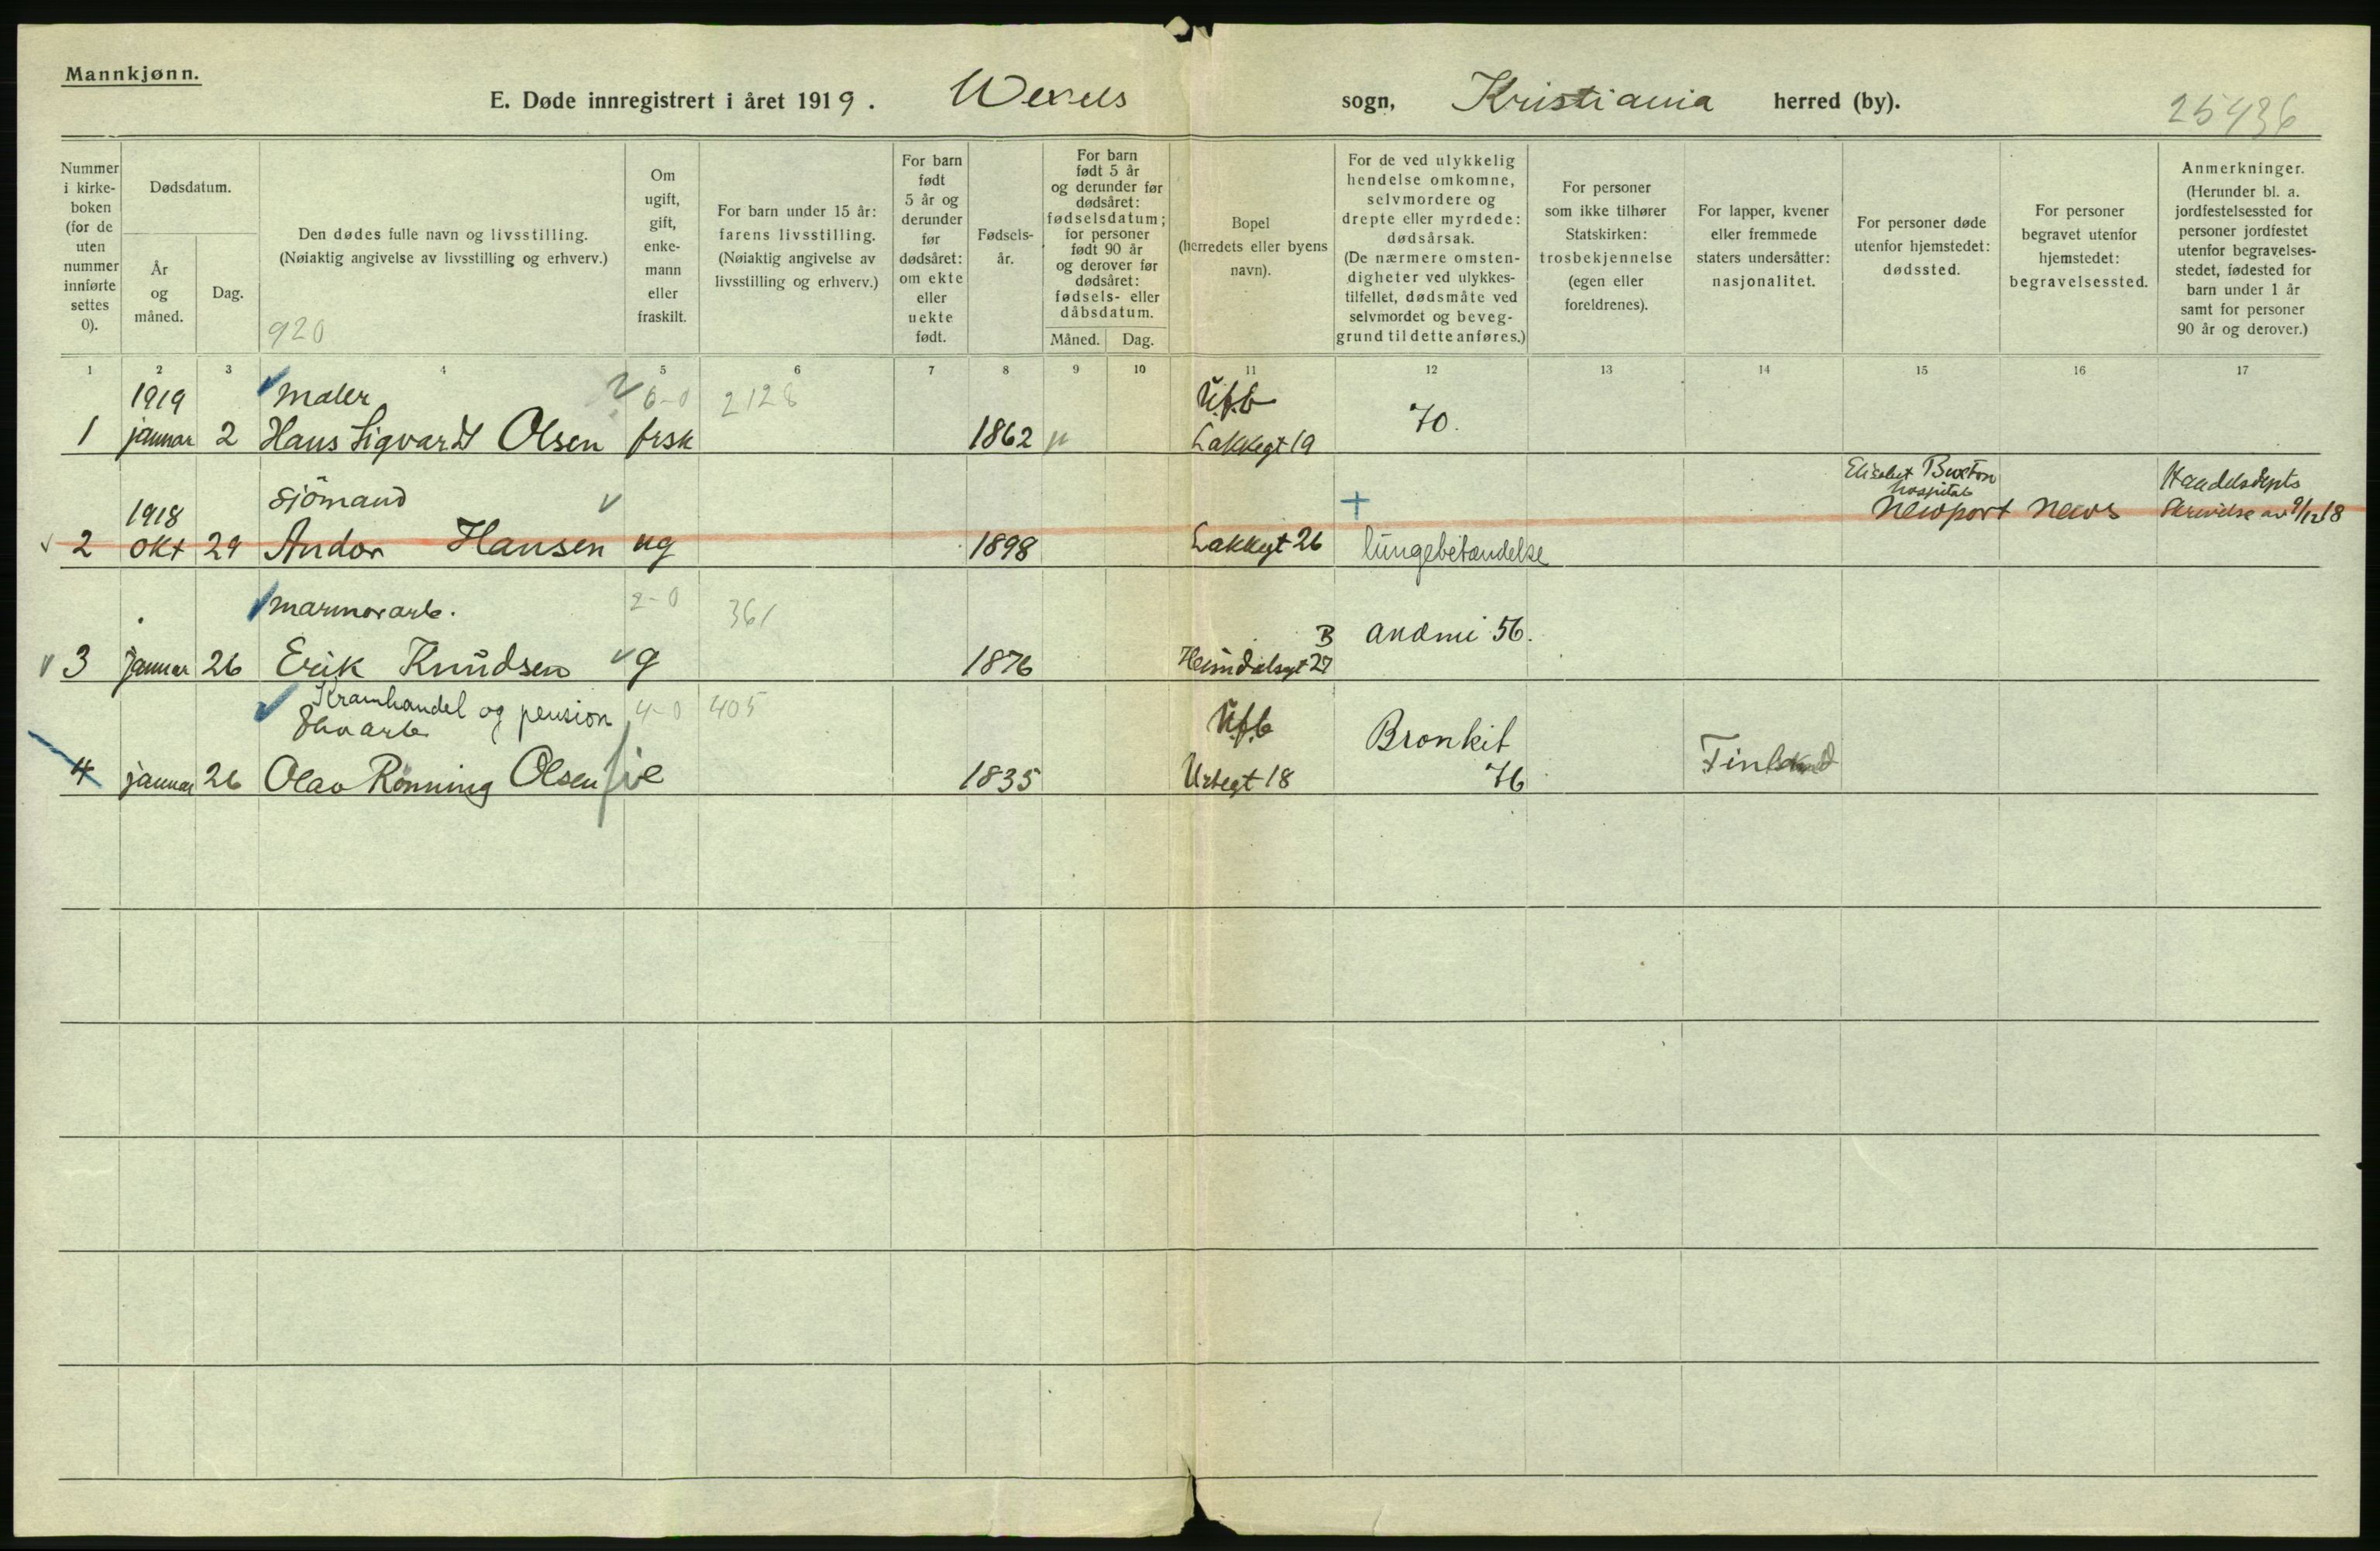 Mannkjønn.
E. Døde innregistrert i året 1919. Wexels sogn, Kristiania herred (by).
25436
Nummer i kirke- boken (for de uten nummer innførte settes 0).
Dødsdatum.
År og måned.
Dag.
Den dødes fulle navn og livsstilling.
(Nøiaktig angivelse av livsstilling og erhverv.)
920
Om ugift, gift, enke- mann eller fraskilt.
For barn under 15 år: farens livsstilling. (Nøiaktig angivelse av livsstilling og erhverv.)
For barn født 5 år og derunder før dødsåret: om ekte eller uekte født.
Fødsels- år.
For barn født 5 år og derunder før dødsåret: fødselsdatum; for personer født 90 år og derover før dødsåret: fødsels- eller dåbsdatum.
Måned. Dag.
Bopel (herredets eller byens navn).
For de ved ulykkelig hendelse omkomne, selvmordere og drepte eller myrdede: dødsårsak. (De nærmere omsten- digheter ved ulykkes- tilfellet, dødsmåte ved selvmordet og beveg- grund til dette anføres.)
For personer som ikke tilhører Statskirken: trosbekjennelse (egen eller foreldrenes).
For lapper, kvener eller fremmede staters undersåtter: nasjonalitet.
For personer døde utenfor hjemstedet: dødssted.
For personer begravet utenfor hjemstedet: begravelsessted.
Anmerkninger. (Herunder bl. a. jordfestelsessted for personer jordfestet utenfor begravelses- stedet, fødested for barn under 1 år samt for personer 90 år og derover.)
1 2 3 4 5 6 7 8 9 10 11 12 13 14 15 16 17
1919 Maler 6-0 2128 U.f.b
1 januar 2 Hans Sigvardt Olsen frsk 1862 Lakkegt 19 70.
Elisabet Buxton hospital
1918 Sjömand + Newport News Handelsdepts Skrivelse av 9/12 18
2 Okt 29 Andor Hansen ug 1898 Lakkegt 26 lungebetændelse
Marmorarb. 2-0 361
3 Januar 26 Erik Knudsen g 1876 Heimdalsgt 27 B anæmi 56.
Kramhandel og pension 4-0 405 U.f.b
4 januar 26 Olav Rönning Olsen e 1835 Urtegt 18 Bronkit 76 Finland